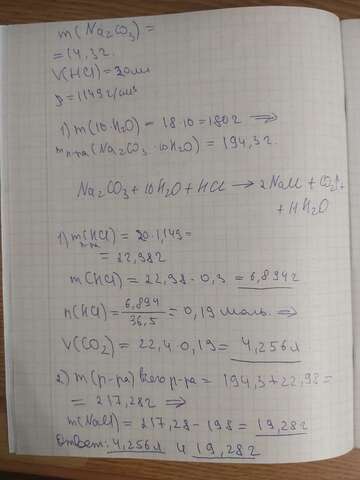 m(Na₂CO₃) =
= 14,3 г.
V(HCl) = 20 мл
ρ = 1,149 г/см³
1) m(10·H₂O) = 18·10 = 180 г ⇒
m р-ра (Na₂CO₃·10H₂O) = 194,3 г.
Na₂CO₃ + 10H₂O + HCl → 2NaCl + CO₂↑ +
+ 11H₂O
1) m р-ра (HCl) = 20·1,149 =
= 22,98 г
m(HCl) = 22,98·0,3 = 6,894 г
n(HCl) = 6,894/36,5 = 0,19 моль. ⇒
V(CO₂) = 22,4·0,19 = 4,256 л
2) m(р-ра) всего р-ра = 194,3 + 22,98 =
= 217,28 г ⇒
m(NaCl) = 217,28 - 198 = 19,28 г
Ответ: 4,256 л и 19,28 г